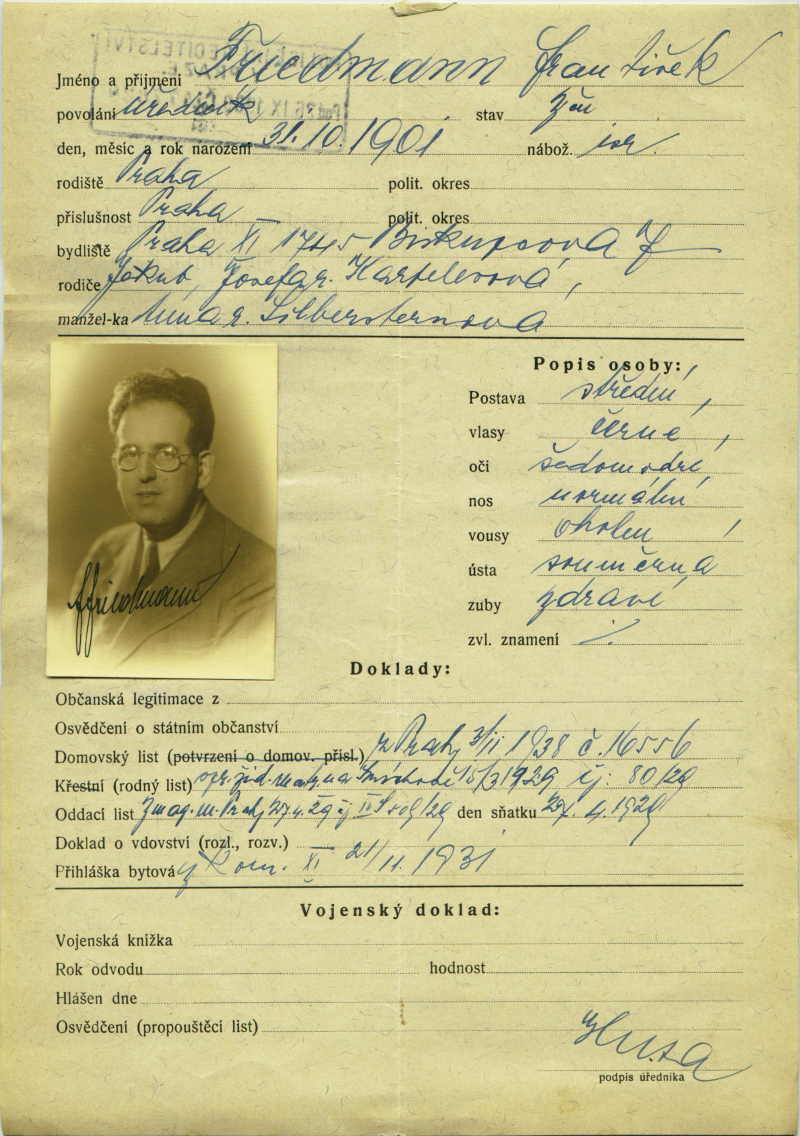 Jméno a příjmení Friedmann František
povolání úředník stav žen
den, měsíc a rok narození 31. 10. 1901 nábož. isr.
rodiště Praha polit. okres
příslušnost Praha polit. okres
bydliště Praha XI 1745 Biskupcova 7
rodiče Jakub, Josefa r.
manžel-ka Anna r. Silbersternová
Popis osoby:
Postava střední,
vlasy černé,
oči šedomodré,
nos normální
vousy oholen
ústa souměrná
zuby zdravé
zvl. znamení
ffriedmann
Doklady:
Občanská legitimace z
Osvědčení o státním občanství
Domovský list (potvrzení o domov. přísl.) z Prahy 3/II 1938 č. 16556
Křestní (rodný list) žid. 15/3 1929 čj: 80/29
Oddací list mag. m. Prahy 27.4.29 den sňatku 27. 4. 1929
Doklad o vdovství (rozl., rozv.) —
Přihláška bytová z kom. XI 21/11. 1931
Vojenský doklad:
Vojenská knížka
Rok odvodu hodnost
Hlášen dne
Osvědčení (propouštěcí list)
podpis úředníka